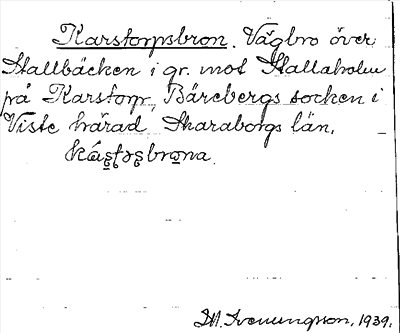 Karstorpsbron. Vägbro över
Stallbäcken i gr. mot Stallaholm
på Karstorp, Bärebergs socken i
Viste härad Skaraborgs län.
M. Svenungsson, 1939.